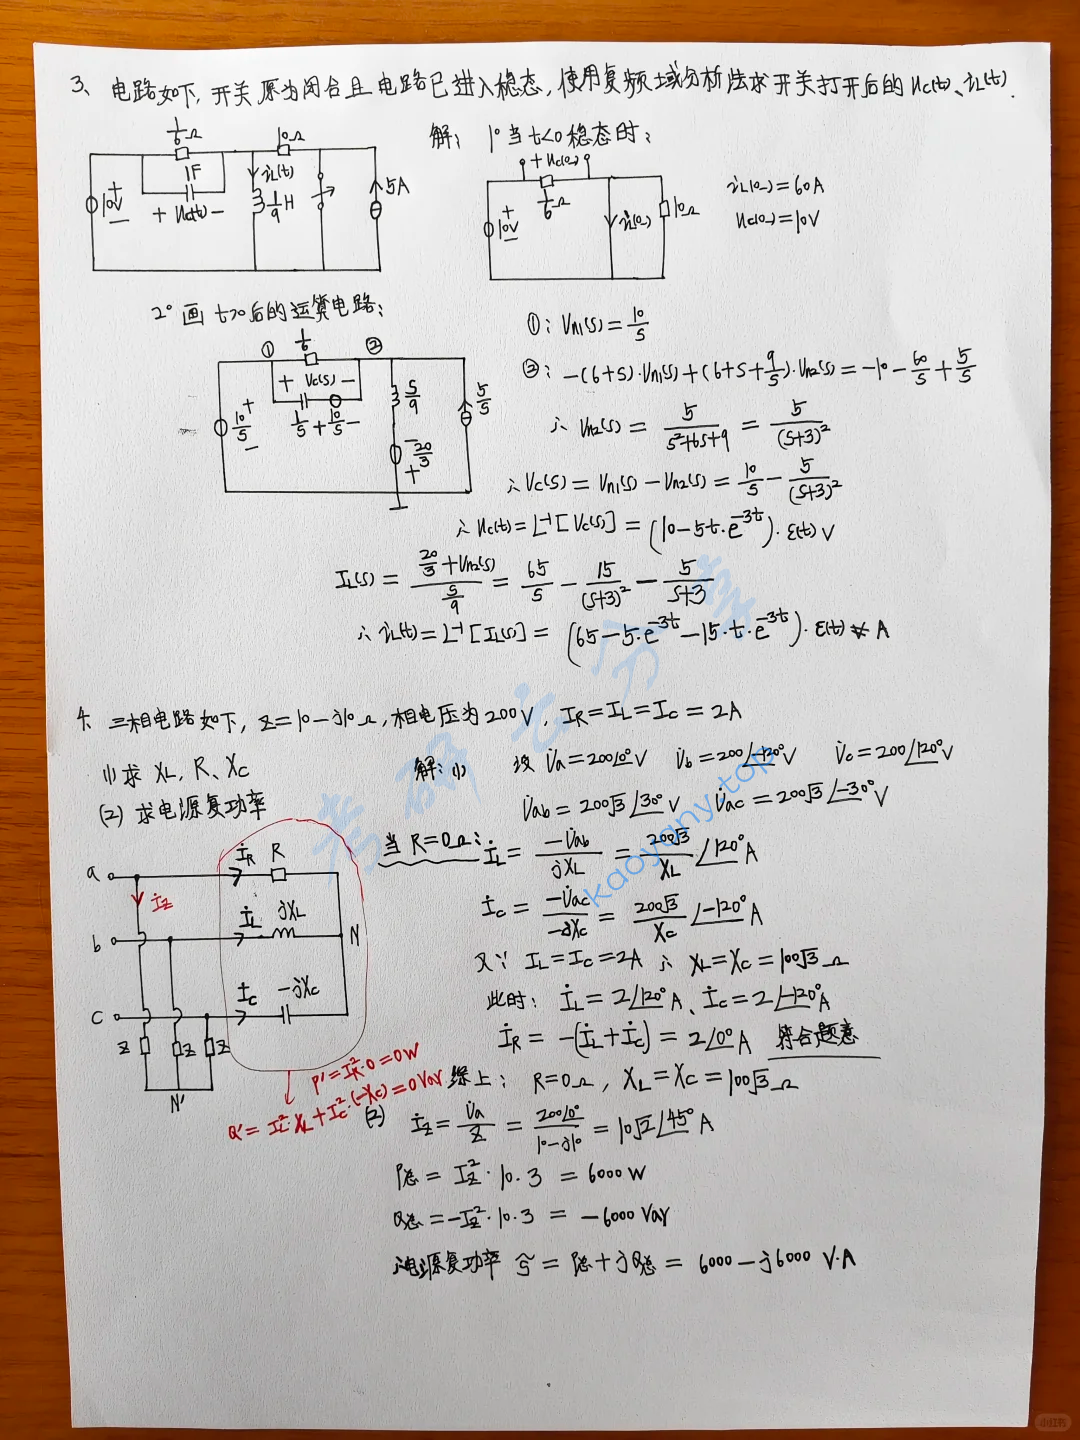 3、电路如下,开关原为闭合且电路已进入稳态,使用复频域分析法求开关打开后的 uc(t)、iL(t).
1/6Ω
10Ω
1F
iL(t)
10V
+ uc(t) −
1/9 H
5A
解: 1° 当 t<0 稳态时:
+ uc(0-) −
1/6Ω
10V
iL(0-)
10Ω
iL(0-)=60A
uc(0-)=10V
2° 画 t>0后的运算电路:
① 1/6 ②
+ Vc(s) −
10/s
1/s + 10/s −
s/9
20/3
5/s
①: Un1(s)=10/s
②: −(6+s)·Un1(s)+(6+s+9/s)·Un2(s)=−10−60/s+5/s
∴ Un2(s) = 5/(s²+6s+9) = 5/(s+3)²
∴ Vc(s) = Un1(s) − Un2(s) = 10/s − 5/(s+3)²
∴ uc(t) = L⁻¹[Vc(s)] = (10−5t·e^{−3t})·ε(t) V
IL(s) = (20/3+Un2(s))/(s/9) = 65/s − 15/(s+3)² − 5/(s+3)
∴ iL(t)=L⁻¹[IL(s)] = (65−5·e^{−3t}−15·t·e^{−3t})·ε(t) A
4、三相电路如下, Z=10−j10Ω, 相电压为200V, IR=IL=IC=2A
(1) 求 XL、R、XC
(2) 求电源复功率
解: (1) 设 U̇a=200∠0°V U̇b=200∠−120°V U̇c=200∠120°V
U̇ab=200√3∠30°V U̇ac=200√3∠−30°V
当 R=0Ω: İL = −U̇ab/jXL = 200√3/XL ∠120°A
İC = −U̇ac/−jXC = 200√3/XC ∠−120°A
又∵ IL=IC=2A ∴ XL=XC=100√3Ω
此时: İL=2∠120°A、İC=2∠−120°A
İR=−(İL+İC)=2∠0°A 符合题意
综上: R=0Ω, XL=XC=100√3Ω
a İR R
İZ
b İL jXL N
c İC −jXC
Z Z Z
N'
P'=IR²·0=0W
Q'=IL²·XL+IC²·(−XC)=0Var
(2) İZ = U̇a/Z = 200∠0°/(10−j10) = 10√2∠45°A
P总 = IZ²·10·3 = 6000W
Q总 = −IZ²·10·3 = −6000 Var
∴电源复功率 S̃ = P总+jQ总 = 6000−j6000 V·A
考研云分享
kaoyany.top
小红书